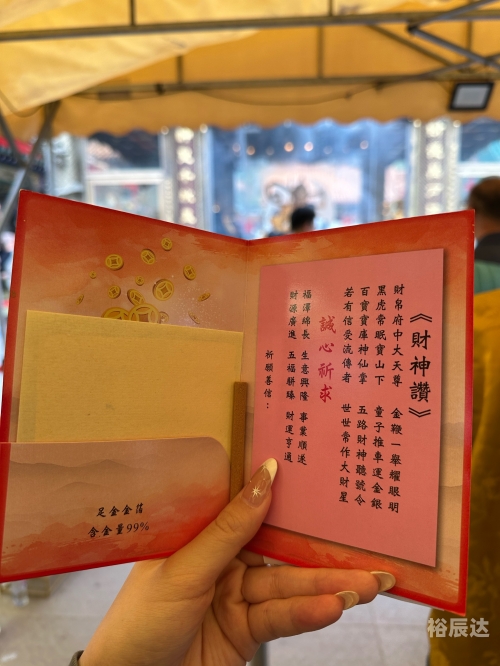 《財神讚》
財帛府中大天尊　金鞭一舉耀眼明
黑虎常眠寶山下　童子推車運金銀
百寶寶庫神仙掌　五路財神聽號令
若有信受流傳者　世世常作大財星
誠心祈求
福澤綿長　生意興隆　事業順遂
財源廣進　五福駢臻　財運亨通
祈願善信：
足金金箔
含金量99%
裕辰达